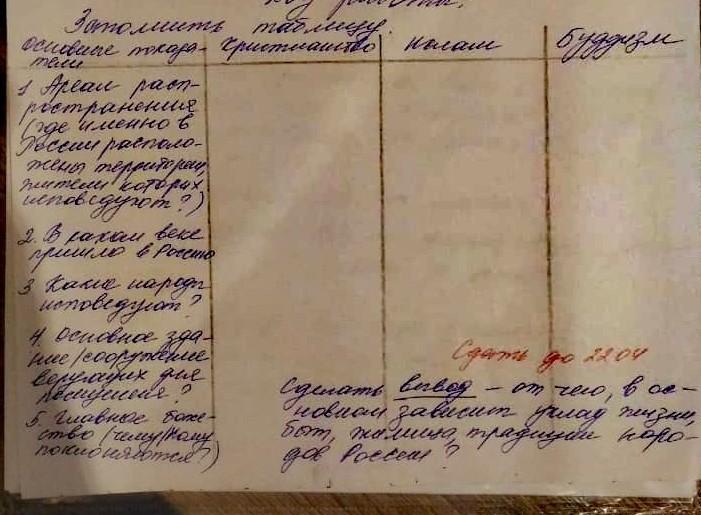 Ход работы.
Заполнить таблицу.
Основные показа-
тели
Христианство
Ислам
Буддизм
1 Ареал расп-
ространения
(где именно в
России располо-
жены территории,
жители которых
исповедуют?)
2. В каком веке
пришло в Россию
3 Какие народы
исповедуют?
4. Основное зда-
ние/сооружение
верующих для
посещения?
5. Главное боже-
ство (чему/кому
поклоняются?)
Сдать до 22.04
Сделать вывод – от чего, в ос-
новном зависит уклад жизни,
быт, жилища, традиции наро-
дов России?